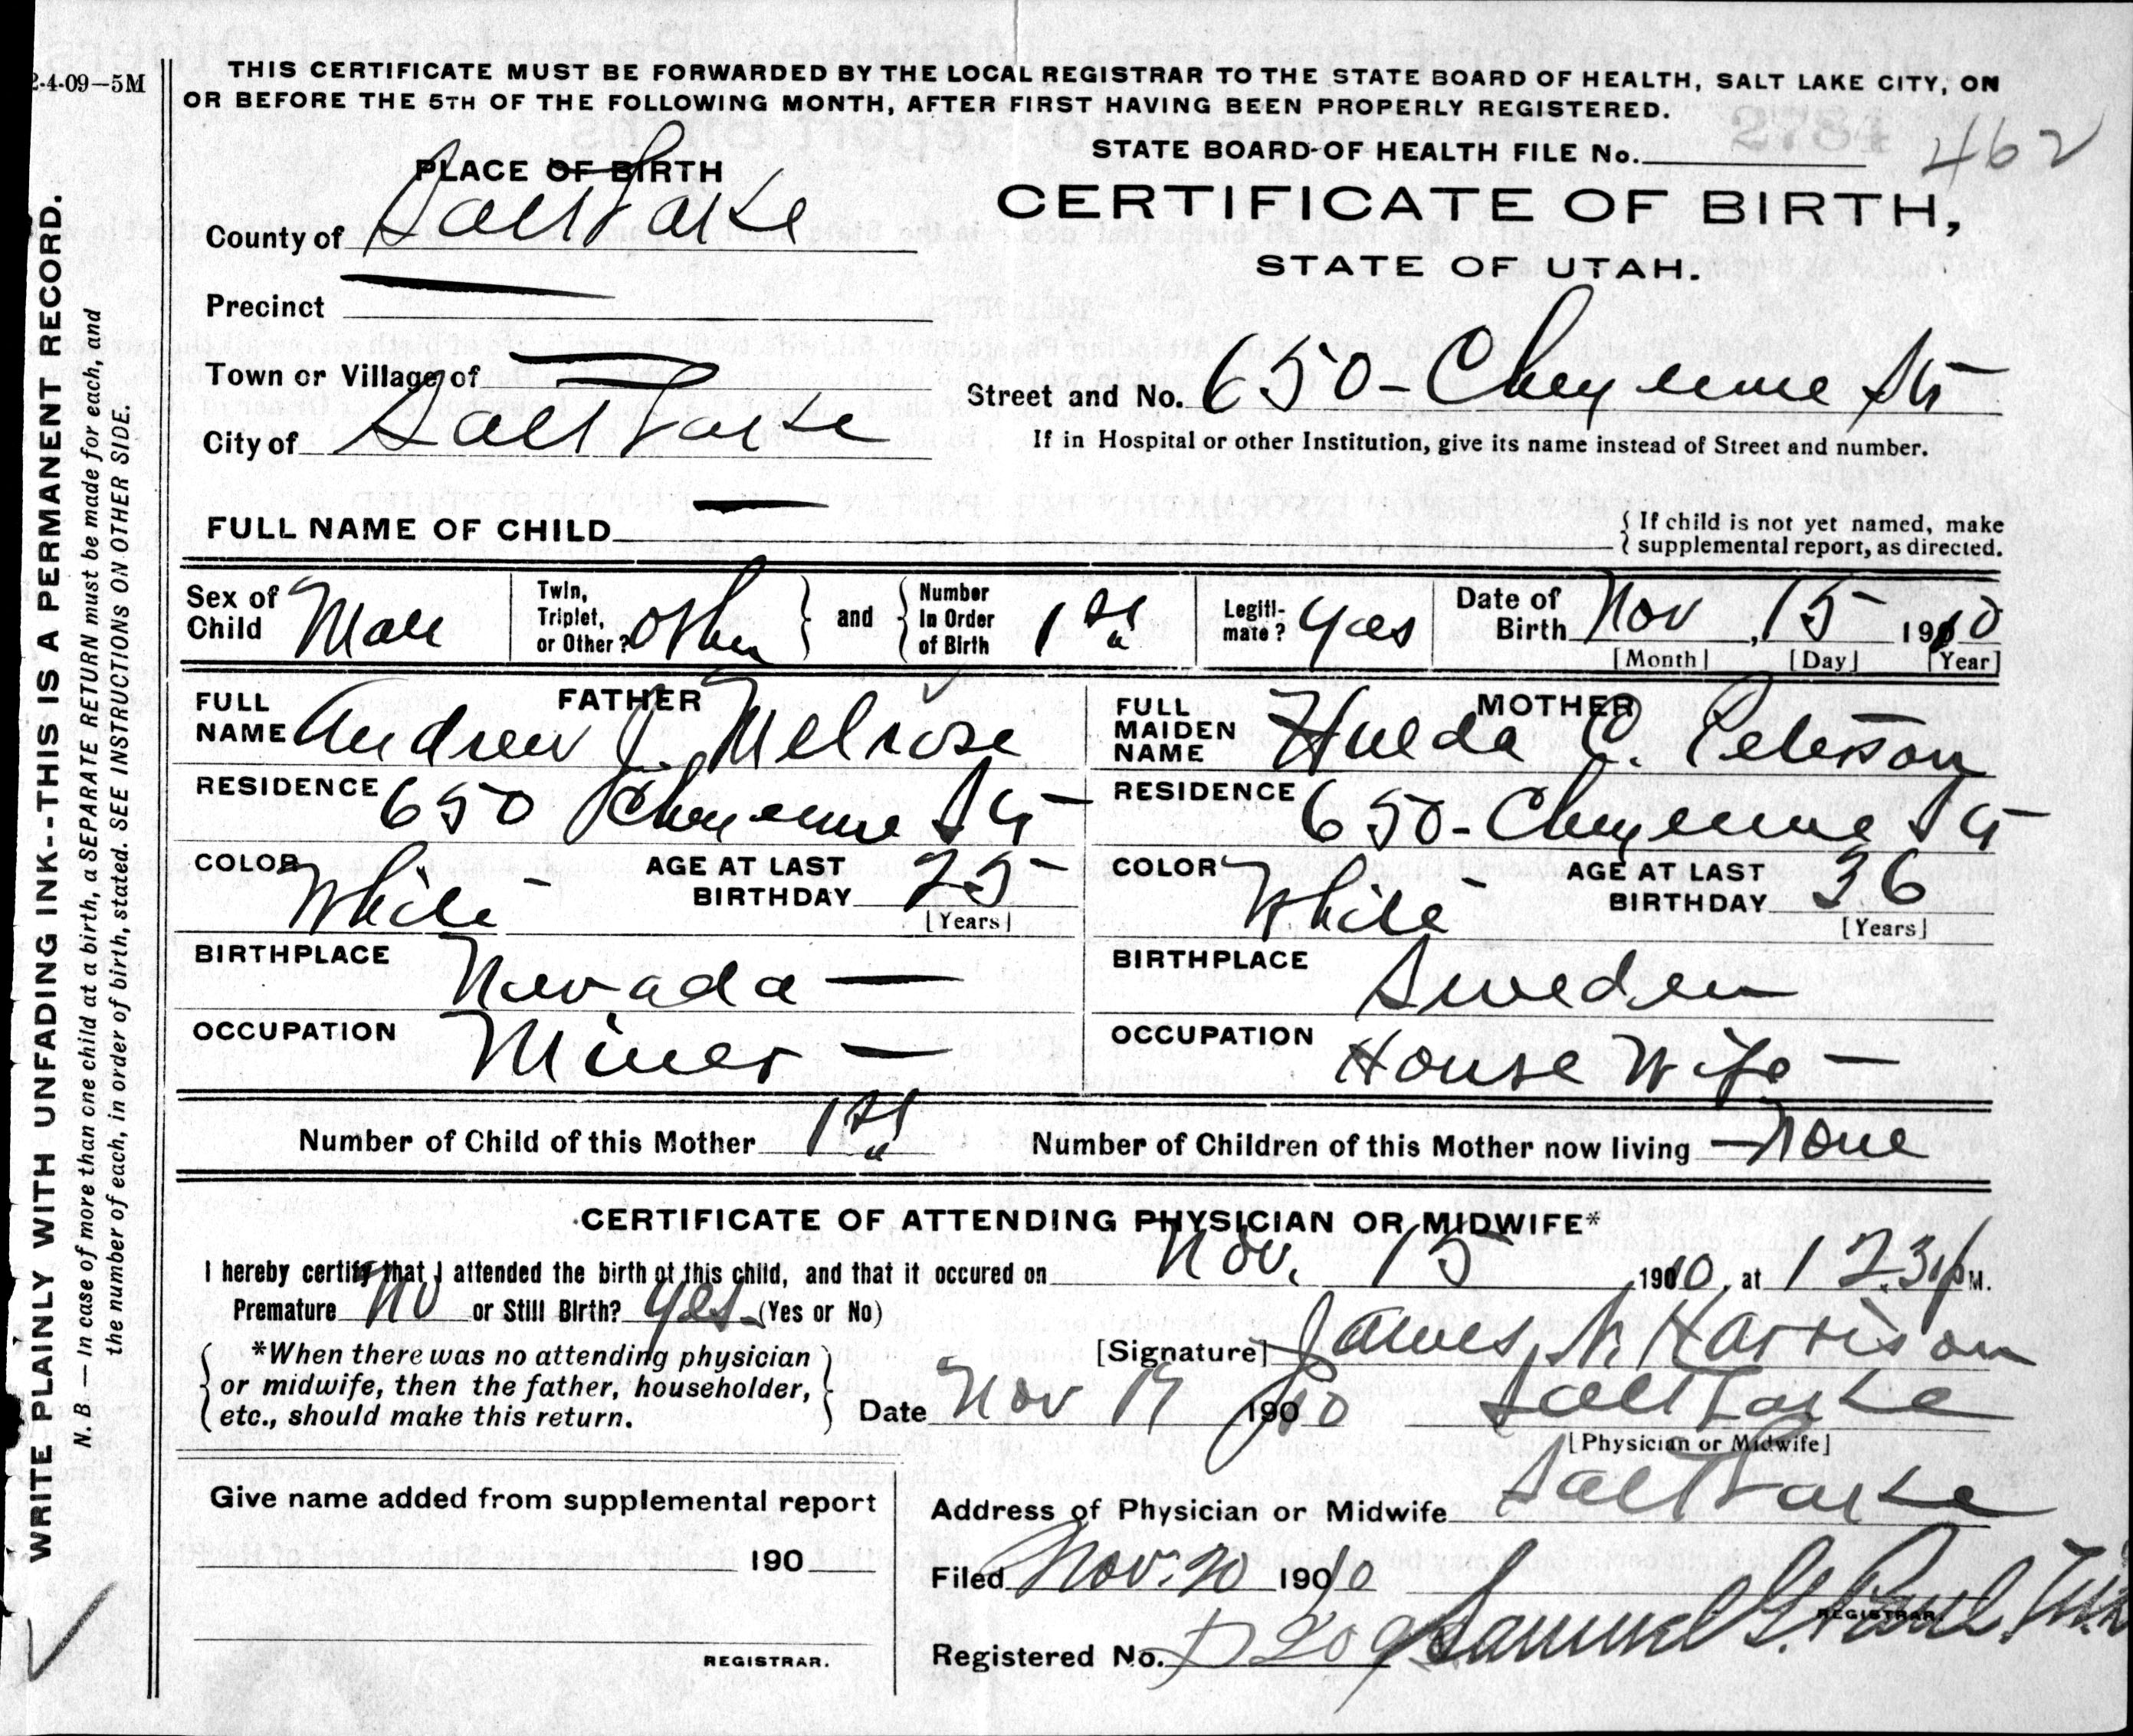 2-4-09—5M
THIS CERTIFICATE MUST BE FORWARDED BY THE LOCAL REGISTRAR TO THE STATE BOARD OF HEALTH, SALT LAKE CITY, ON
OR BEFORE THE 5TH OF THE FOLLOWING MONTH, AFTER FIRST HAVING BEEN PROPERLY REGISTERED.
STATE BOARD OF HEALTH FILE No. 462
2784
PLACE OF BIRTH
CERTIFICATE OF BIRTH,
STATE OF UTAH.
County of Salt Lake
Precinct —
Town or Village of —
Street and No. 650 - Cheyenne St
City of Salt Lake
If in Hospital or other Institution, give its name instead of Street and number.
FULL NAME OF CHILD —
{ If child is not yet named, make
supplemental report, as directed.
Sex of Child Male
Twin, Triplet, or Other? Other } and { Number In Order of Birth 1st
Legiti-mate? Yes
Date of Birth Nov, 15 1910
[Month] [Day] [Year]
FATHER
FULL NAME Andrew J. Melrose
RESIDENCE 650 Cheyenne St
COLOR White AGE AT LAST BIRTHDAY 25
[Years]
BIRTHPLACE Nevada —
OCCUPATION Miner —
MOTHER
FULL MAIDEN NAME Hulda C. Peterson
RESIDENCE 650 - Cheyenne St
COLOR White AGE AT LAST BIRTHDAY 36
[Years]
BIRTHPLACE Sweden
OCCUPATION House Wife —
Number of Child of this Mother 1st Number of Children of this Mother now living — None
CERTIFICATE OF ATTENDING PHYSICIAN OR MIDWIFE*
I hereby certify that I attended the birth of this child, and that it occured on Nov. 15, 1910, at M.
Premature No or Still Birth? Yes (Yes or No)
{ *When there was no attending physician
or midwife, then the father, householder,
etc., should make this return. }
[Signature] James N. Harrison
Date Nov 19 1910 Salt Lake
[Physician or Midwife]
Give name added from supplemental report
190
REGISTRAR.
Address of Physician or Midwife Salt Lake
Filed Nov. 20 1910
Samuel G. Paul
REGISTRAR.
Registered No.
WRITE PLAINLY WITH UNFADING INK--THIS IS A PERMANENT RECORD.
N. B.—In case of more than one child at a birth, a SEPARATE RETURN must be made for each, and
the number of each, in order of birth, stated. SEE INSTRUCTIONS ON OTHER SIDE.